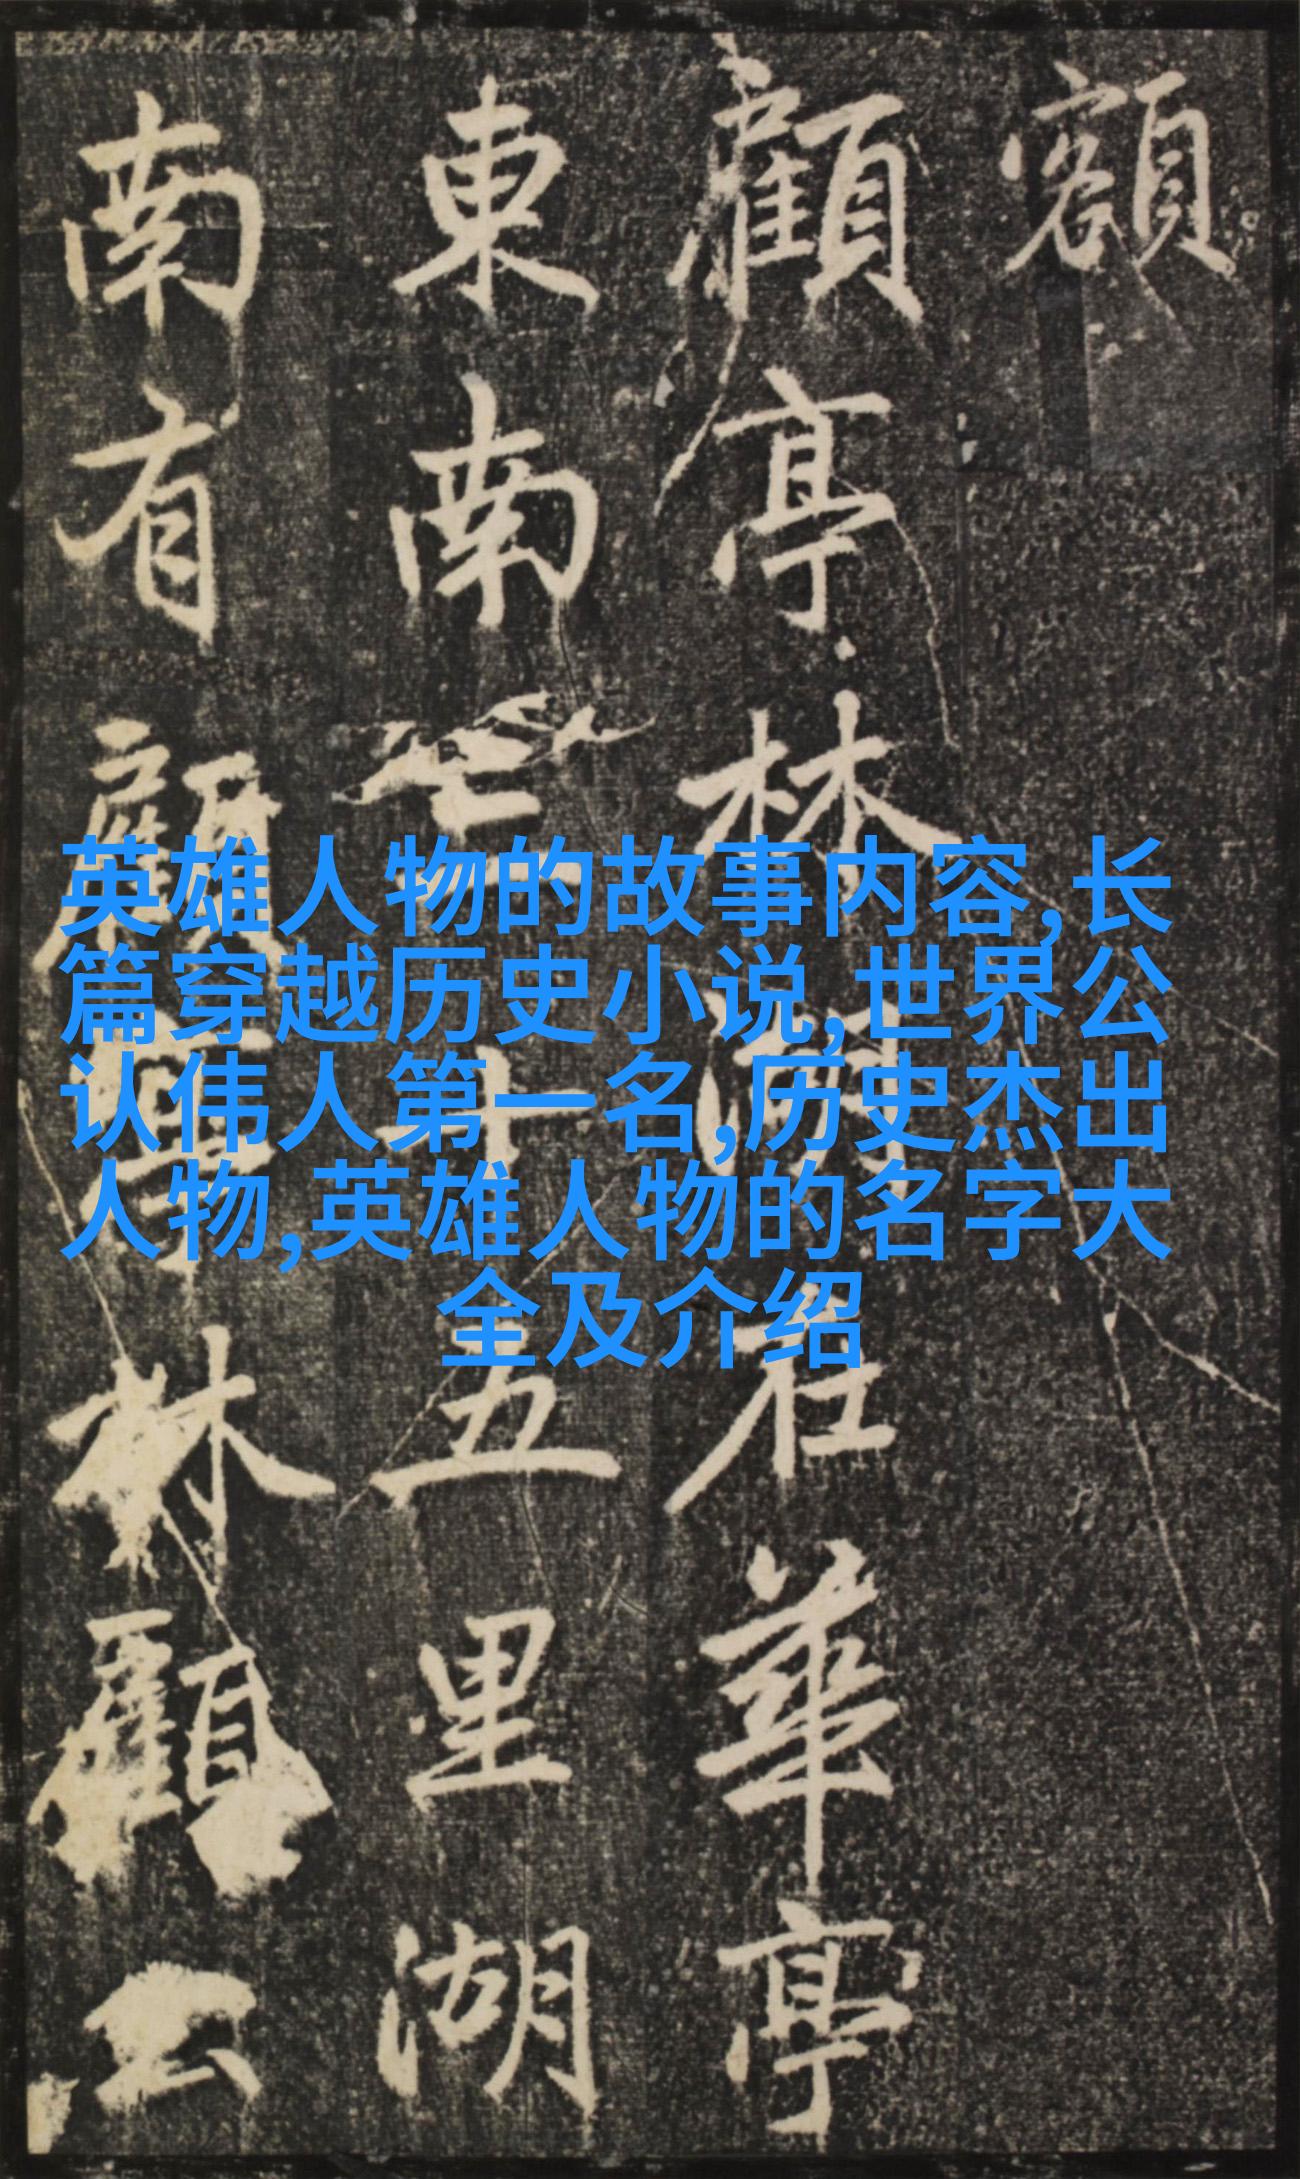 額
顧亭林湖在華亭
東南三十五里湖
南有顧亭林顧公
英雄人物的故事内容,长
篇穿越历史小说,世界公
认伟人第一名,历史杰出
人物,英雄人物的名字大
全及介绍